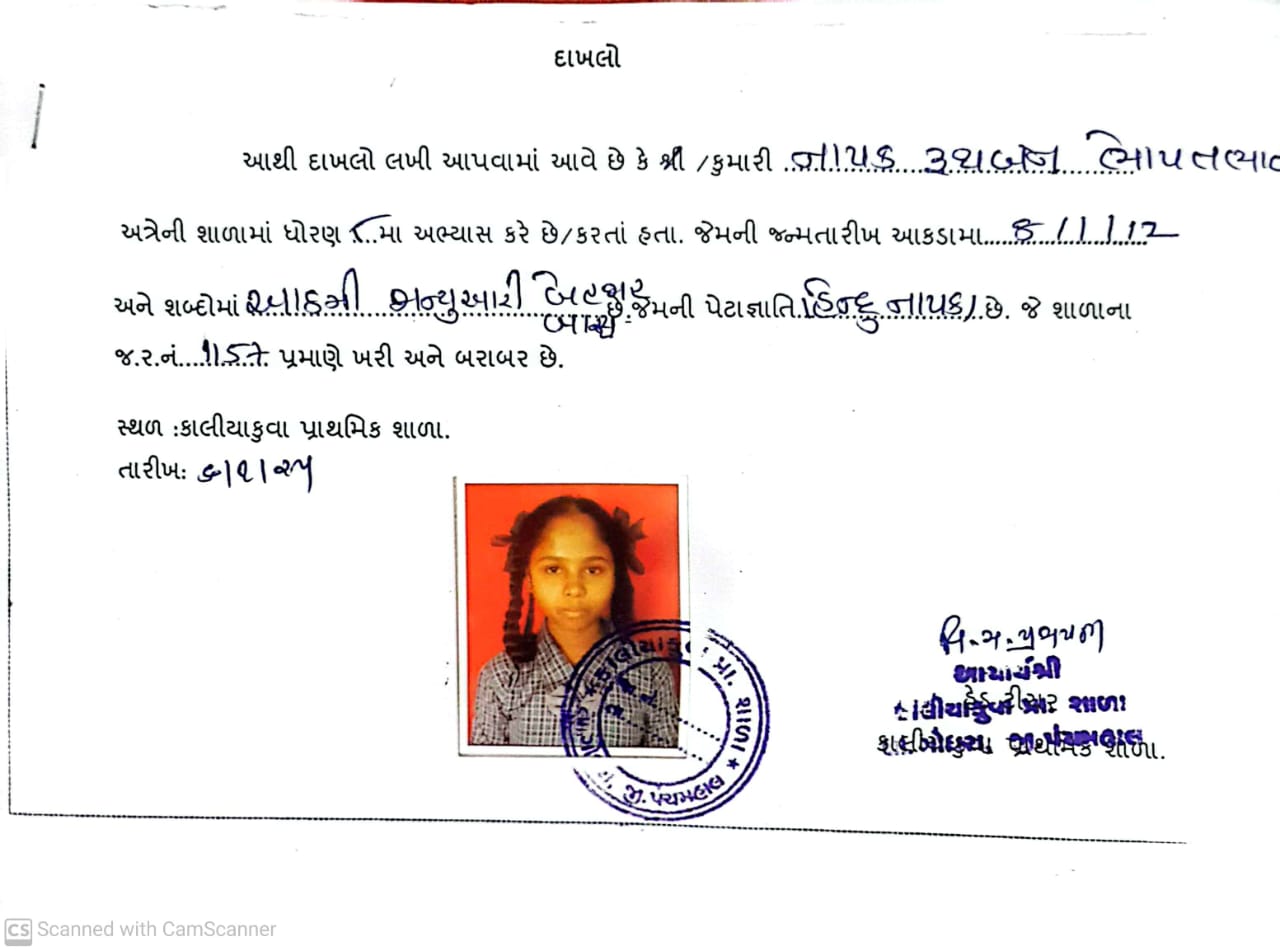 દાખલો
આથી દાખલો લખી આપવામાં આવે છે કે શ્રી /કુમારી નાયક રૂથબેન ભોપતભાઇ
અત્રેની શાળામાં ધોરણ ૮ મા અભ્યાસ કરે છે/કરતાં હતા. જેમની જન્મતારીખ આકડામા 8/1/12
અને શબ્દોમાં આઠમી જાન્યુઆરી બેહજાર બાર છે. જેમની પેટાજ્ઞાતિ હિન્દુ નાયકા છે. જે શાળાના
જ.ર.નં. 1157 પ્રમાણે ખરી અને બરાબર છે.
સ્થળ :કાલીયાકુવા પ્રાથમિક શાળા.
તારીખઃ
આચાર્યશ્રી
કાલીયાકુવા પ્રા. શાળા
જી.પંચમહાલ
પ્રાથમિક શાળા.
જી.પંચમહાલ
CS Scanned with CamScanner